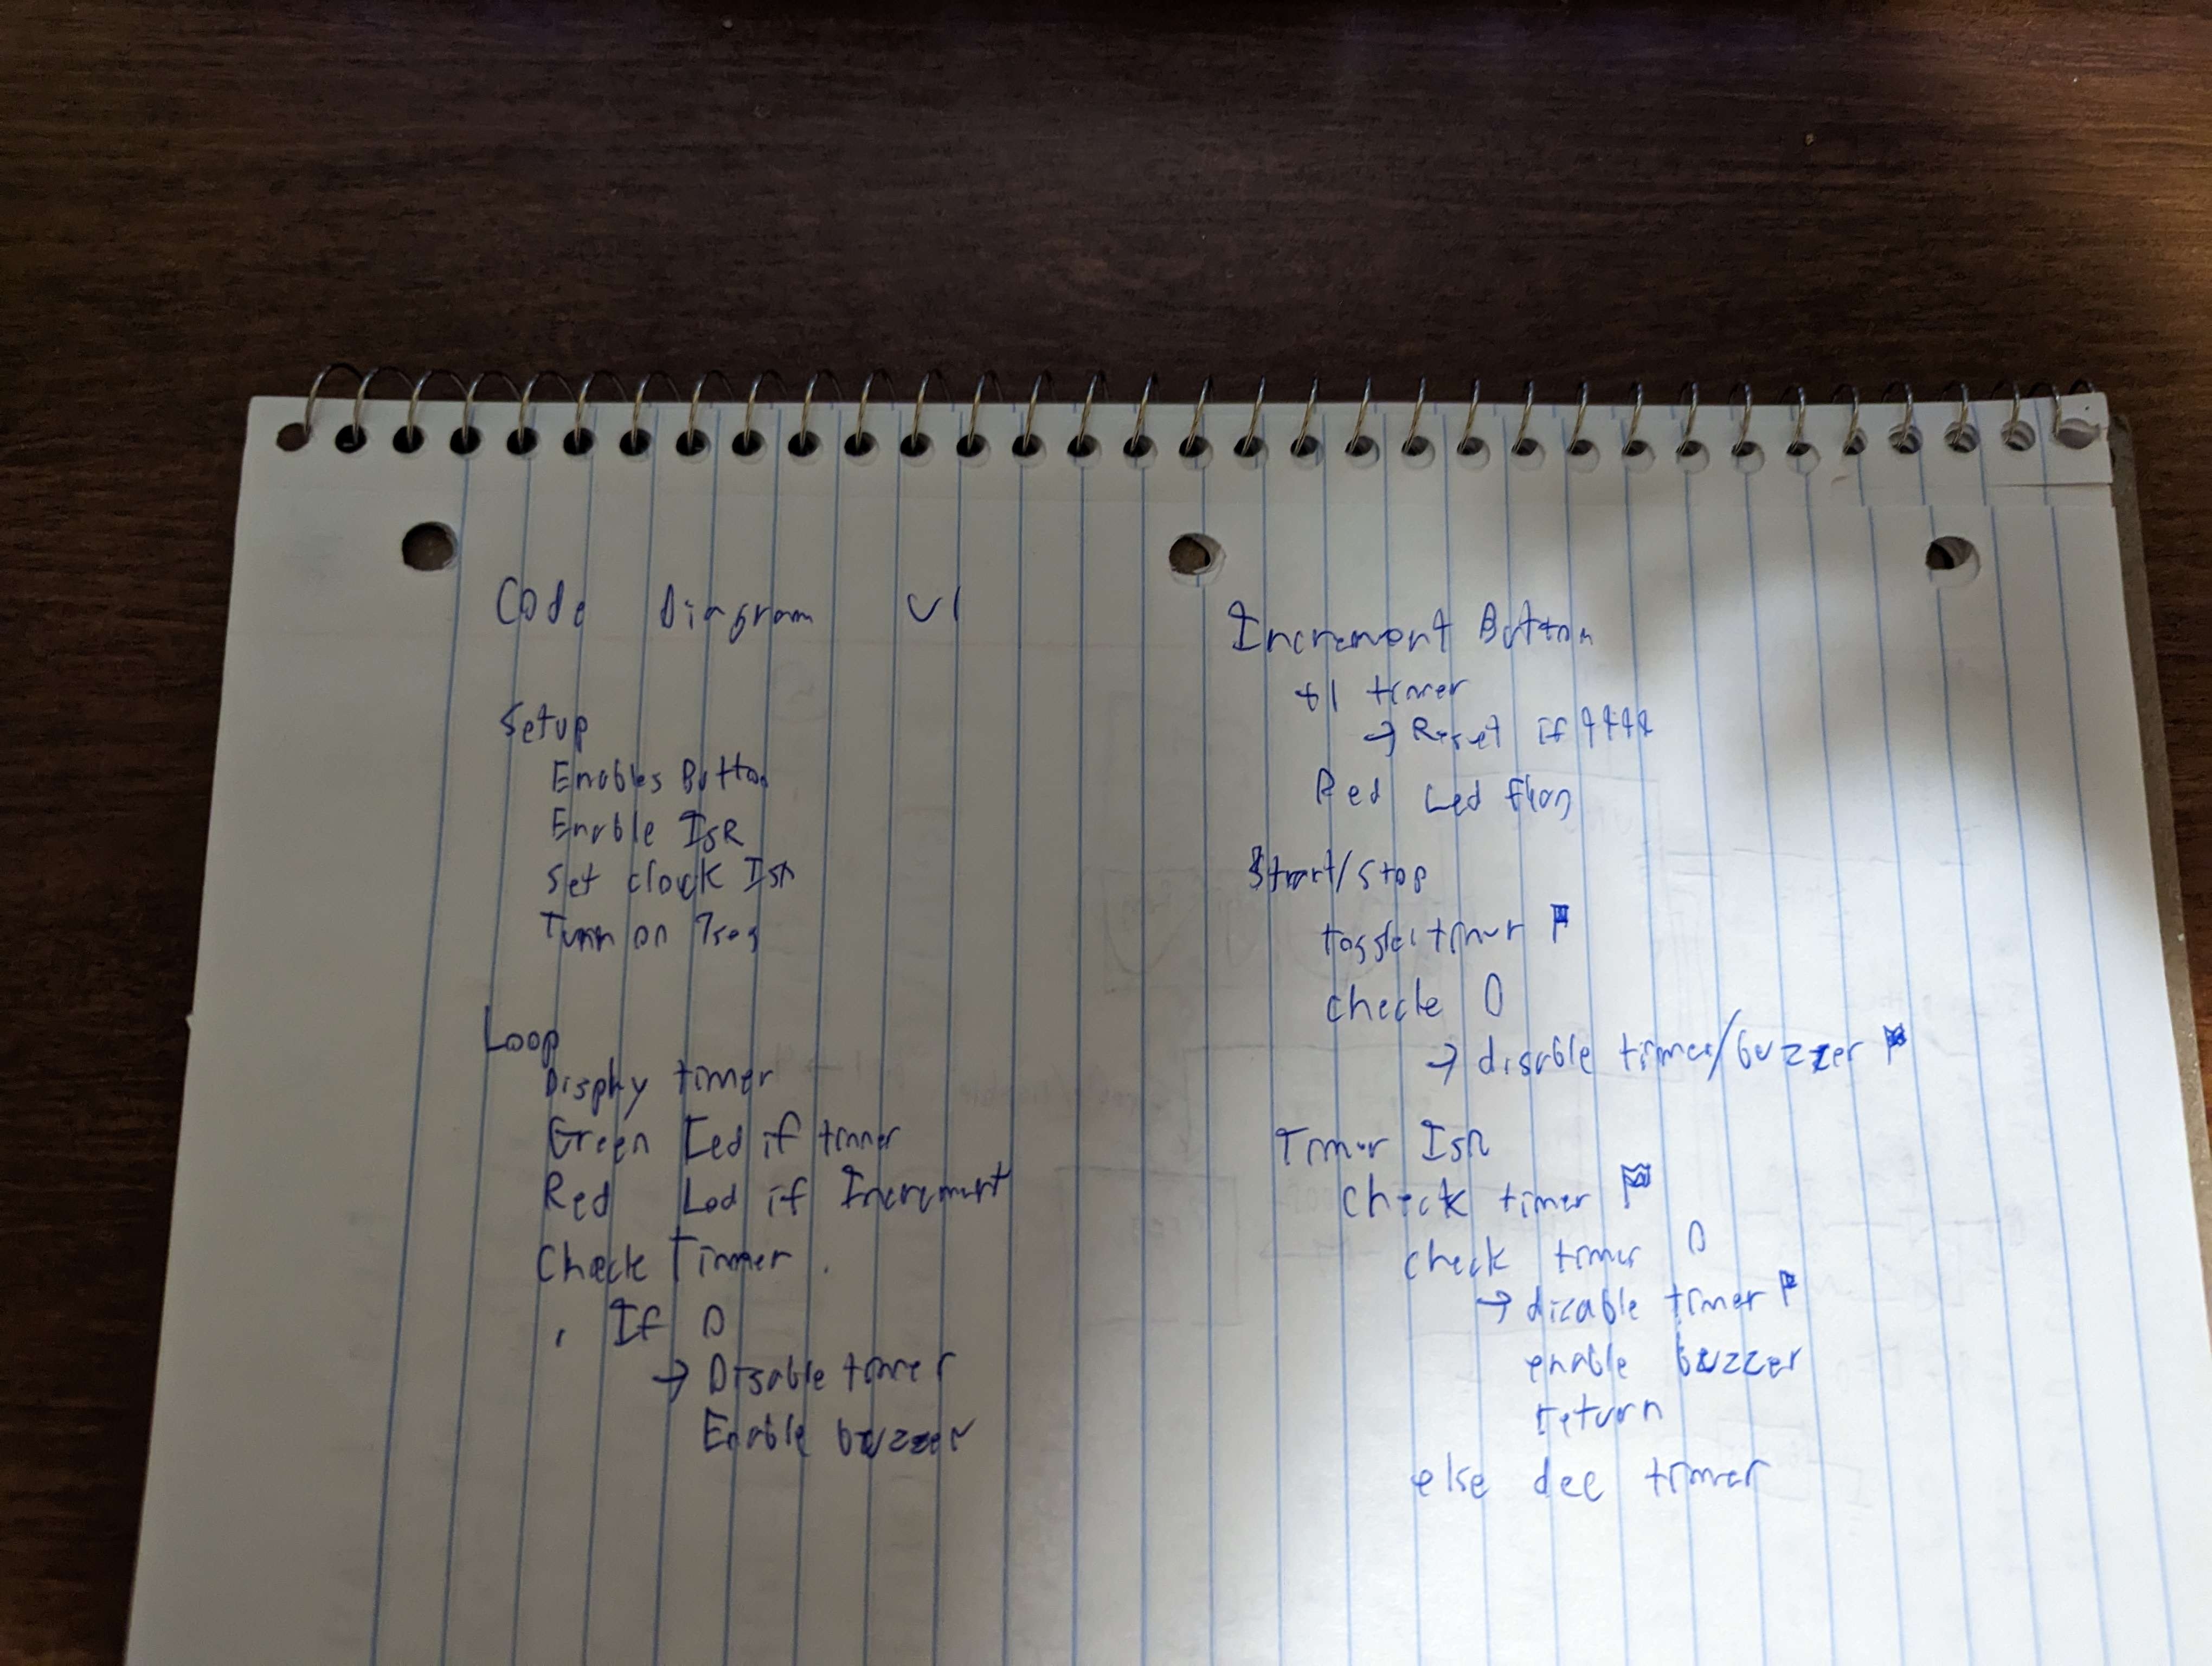 Code Diagram v1
Setup
Enables Button
Enable ISR
Set clock ISR
Turn on 7seg
Loop
Display timer
Green Led if timer
Red Led if Increment
Check Timer
If 0
→ Disable timer
Enable buzzer
Increment Button
+1 timer
→ Reset if 9999
Red Led
Start/Stop
toggle timer
check 0
→ disable timer/buzzer
Timer ISR
Check timer
check timer 0
→ disable timer
enable buzzer
return
else dec timer